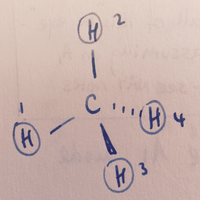 H 2
1
C
H
H 4
H 3